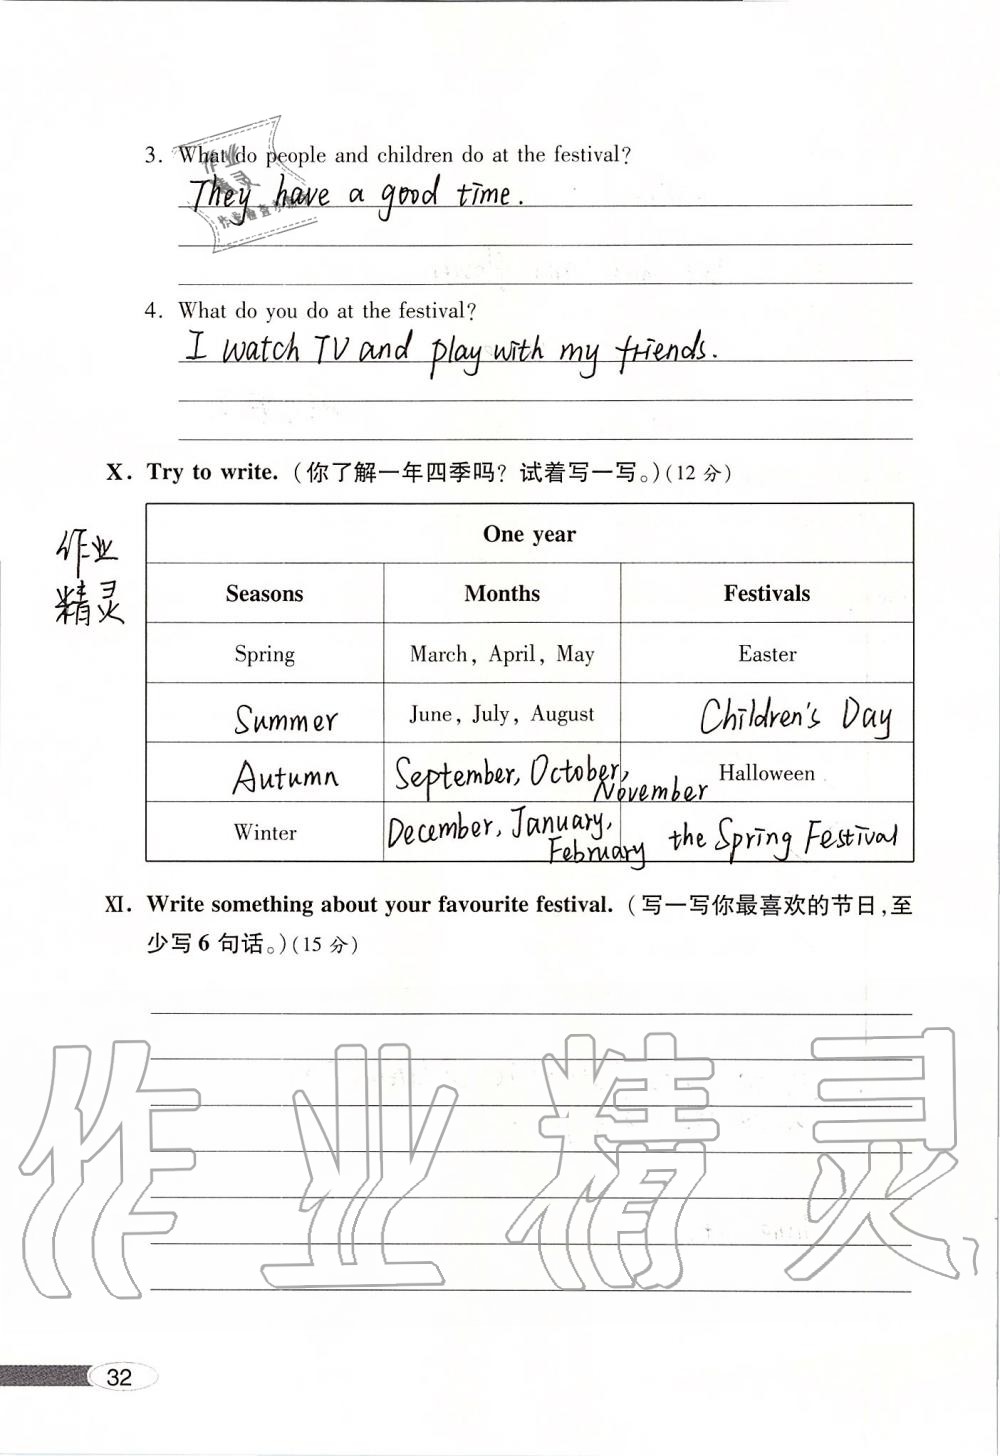 3. What do people and children do at the festival?
They have a good time.
4. What do you do at the festival?
I watch TV and play with my friends.
X. Try to write. (你了解一年四季吗? 试着写一写。)(12 分)
作业
精灵
One year
Seasons Months Festivals
Spring March, April, May Easter
Summer June, July, August Children's Day
Autumn September, October, November Halloween
Winter December, January, February the Spring Festival
XI. Write something about your favourite festival. (写一写你最喜欢的节日,至
少写 6 句话。)(15 分)
作业精灵
32